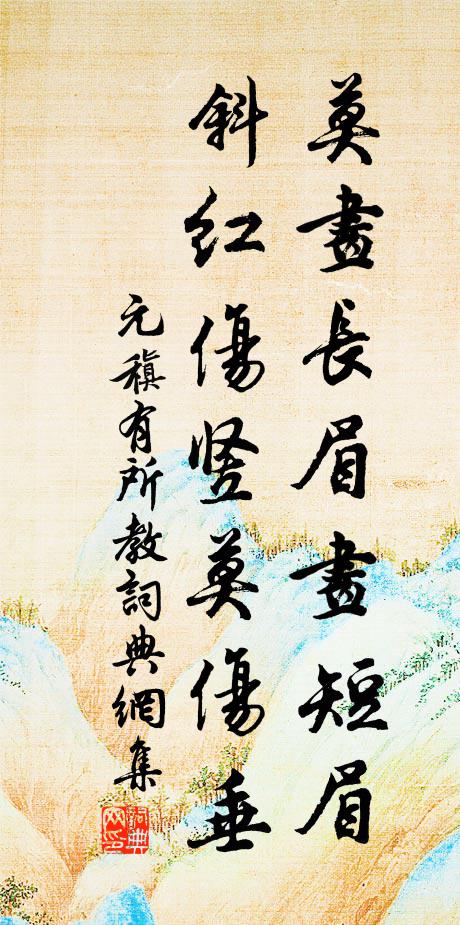 莫畫長眉畫短眉
斜紅傷豎莫傷垂
元稹有所教詞典網集
詞典网印